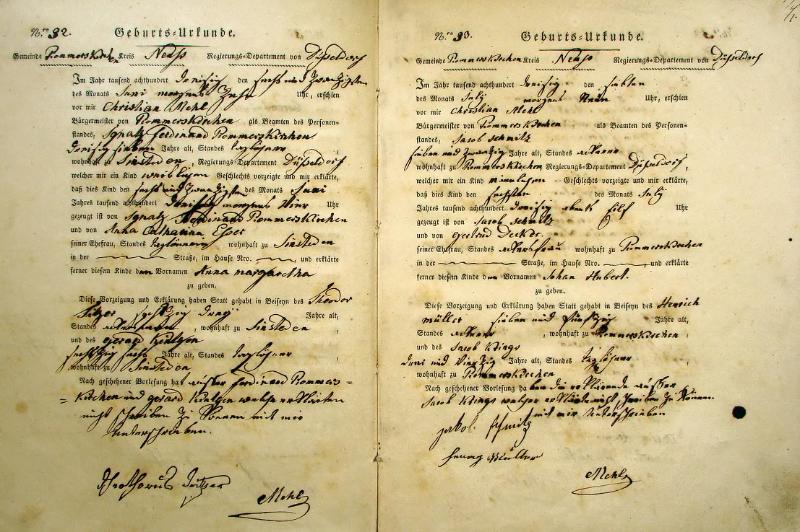 Nro 82. Geburts-Urkunde.
Gemeinde Rommerskirchen Kreis Neuß Regierungs-Departement von Düsseldorf
Im Jahr tausend achthundert dreisig den sechs und zwanzigsten
des Monats Juni morgens Uhr, erschien
vor mir Christian Mehl
Bürgermeister von Rommerskirchen als Beamten des Personen-
standes, Ignatz Ferdinand Rommerskirchen
dreisig sieben Jahre alt, Standes taglöhner
wohnhaft zu Sinsteden, Regierungs-Departement Düsseldorf
welcher mir ein Kind weiblichen Geschlechts vorzeigte und mir erklärte,
daß dies Kind den sechs und zwanzigsten des Monats Juni
Jahres tausend achthundert dreisig morgens vier Uhr
gezeugt ist von Ignatz Ferdinand Rommerskirchen
und von Anna Catharina Esser
seiner Ehefrau, Standes taglöhnerin wohnhaft zu Sinsteden
in der Straße, im Hause Nro. , und erklärte
ferner diesem Kinde den Vornamen Anna margaretha
zu geben.
Diese Vorzeigung und Erklärung haben Statt gehabt in Beiseyn des
sechszig drei Jahre alt,
Standes ackersmann, wohnhaft zu Sinsteden
und des gerard
sechszig sechs Jahre alt, Standes taglöhner
wohnhaft zu Sinsteden
Nach geschehener Vorlesung hat außer Ferdinand Rommers-
=kirchen und gerard welche erklärten
nicht schreiben zu können mit mir
unterschrieben.
Mehl
Nro 83. Geburts-Urkunde.
Gemeinde Rommerskirchen Kreis Neuß Regierungs-Departement von Düsseldorf
Im Jahr tausend achthundert dreisig den siebten
des Monats July morgens Uhr, erschien
vor mir Christian Mehl
Bürgermeister von Rommerskirchen als Beamten des Personen-
standes, Jacob Schmitz
sieben und zwanzig Jahre alt, Standes
wohnhaft zu Rommerskirchen Regierungs-Departement Düsseldorf,
welcher mir ein Kind männlichen Geschlechts vorzeigte und mir erklärte,
daß dies Kind den sechsten des Monats July
Jahres tausend achthundert dreisig abends Elf Uhr
gezeugt ist von Jacob Schmitz
und von gertrud Decker
seiner Ehefrau, Standes wohnhaft zu Rommerskirchen
in der Straße, im Hause Nro. , und erklärte
ferner diesem Kinde den Vornamen Johan Hubert.
zu geben.
Diese Vorzeigung und Erklärung haben Statt gehabt in Beiseyn des Henrich
müller sieben und fünfzig Jahre alt,
Standes , wohnhaft zu Rommerskirchen
und des Jacob Krings
drei und vierzig Jahre alt, Standes taglöhner
wohnhaft zu Rommerskirchen
Nach geschehener Vorlesung haben die außer
Jacob Krings welcher erklärte nicht schreiben zu können
mit mir unterschrieben
jakob schmitz
henrig Muller
Mehl